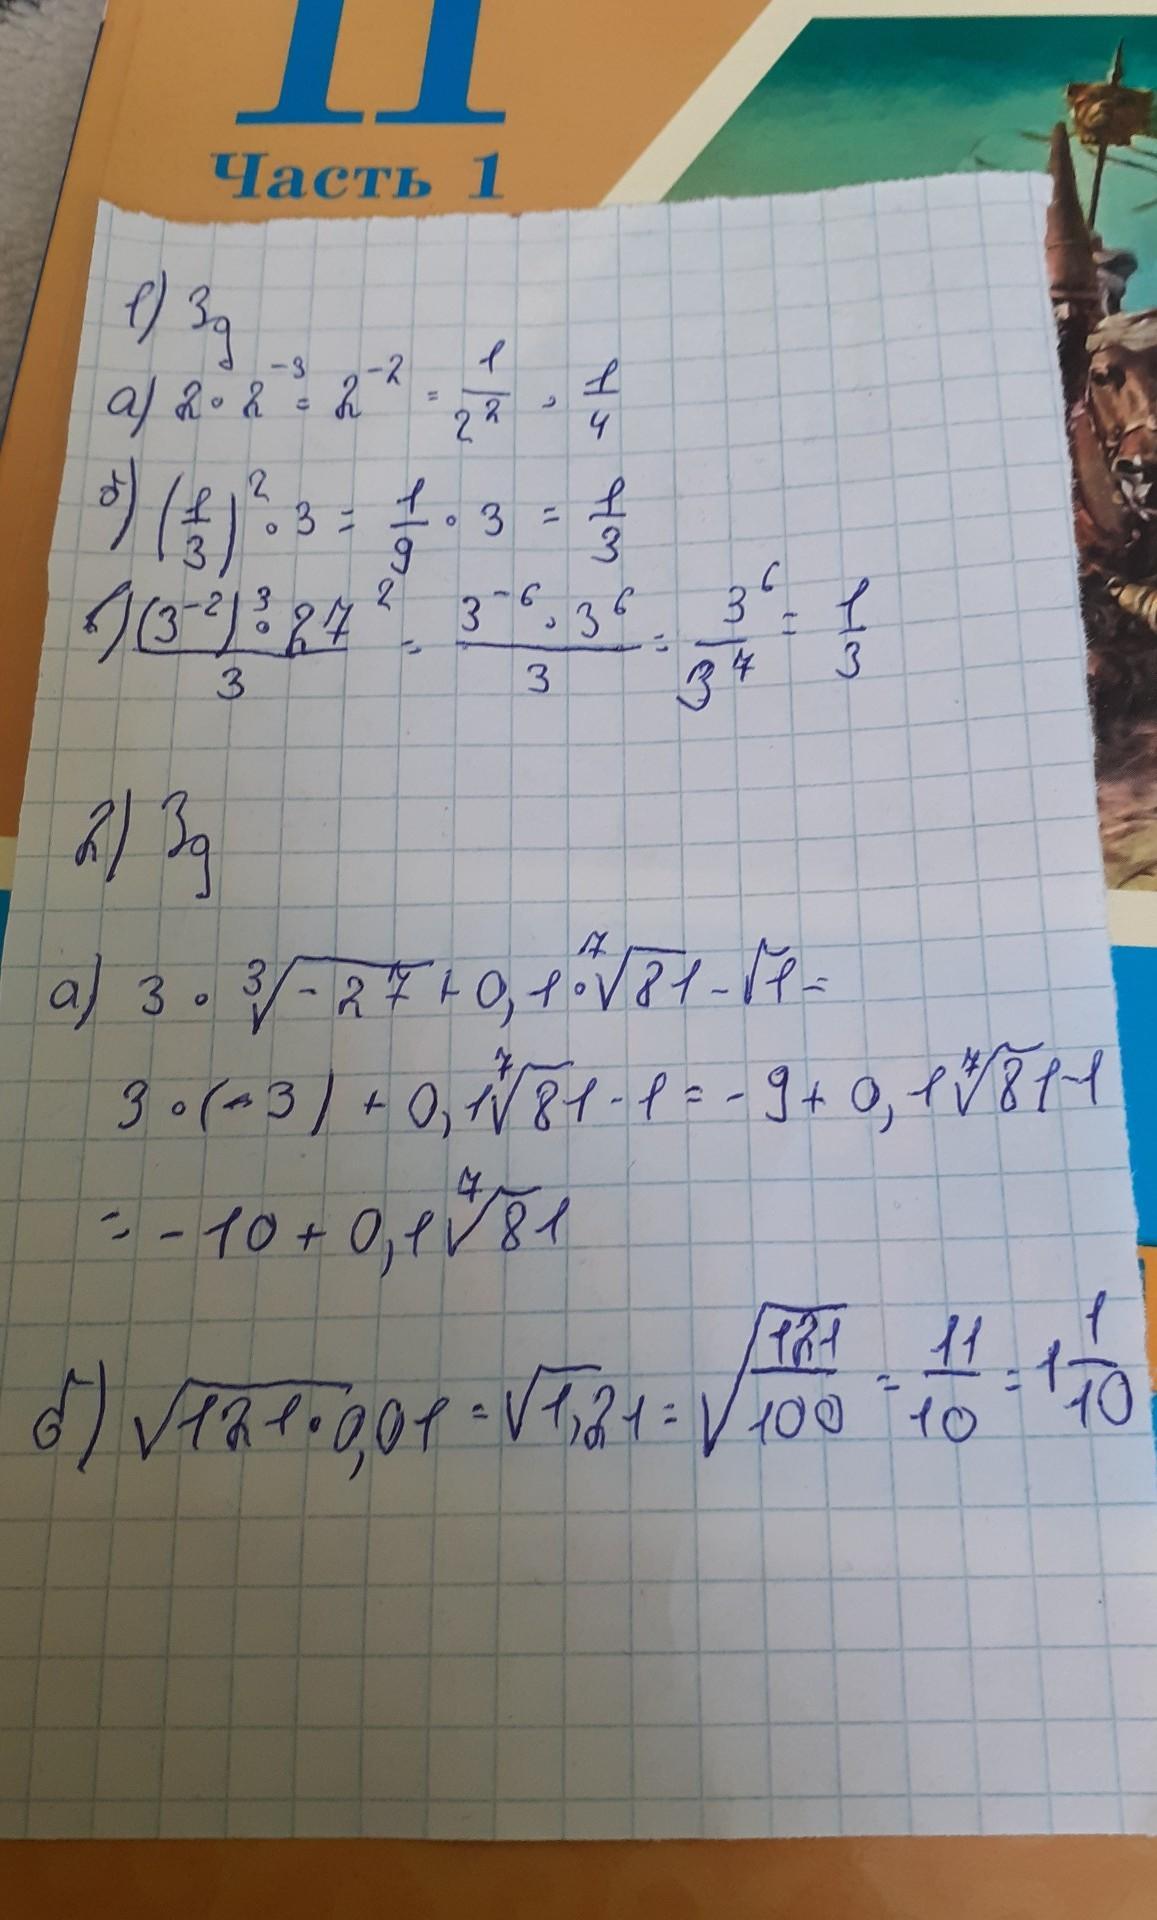 11
Часть 1
1) Зд
а) 2 · 2⁻³ = 2⁻² = 1/2² = 1/4
б) (1/3)² · 3 = 1/9 · 3 = 1/3
в) (3⁻²)³ · 27²/3 = 3⁻⁶ · 3⁶/3 = 3⁶/3⁷ = 1/3
2) Зд
а) 3 · ³√-27 + 0,1 · ⁷√81 - √1 =
3 · (-3) + 0,1⁷√81 - 1 = - 9 + 0,1⁷√81-1
= - 10 + 0,1⁷√81
б) √121·0,01 = √1,21 = √121/100 = 11/10 = 1 1/10